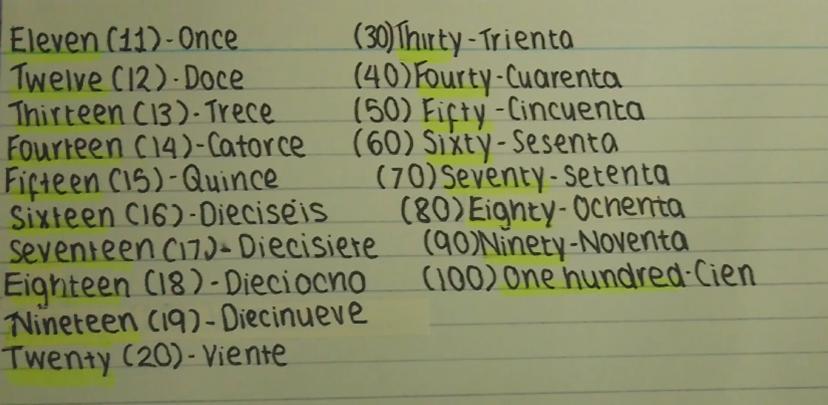 Eleven (11)-Once
Twelve (12)-Doce
Thirteen (13)-Trece
Fourteen (14)-Catorce
Fifteen (15)-Quince
Sixteen (16)-Dieciséis
Seventeen (17)-Diecisiete
Eighteen (18)-Dieciocho
Nineteen (19)-Diecinueve
Twenty (20)-Viente
(30)Thirty-Trienta
(40)Fourty-Cuarenta
(50) Fifty-Cincuenta
(60) Sixty-Sesenta
(70)Seventy-Setenta
(80)Eighty-Ochenta
(90)Ninety-Noventa
(100) One hundred-Cien